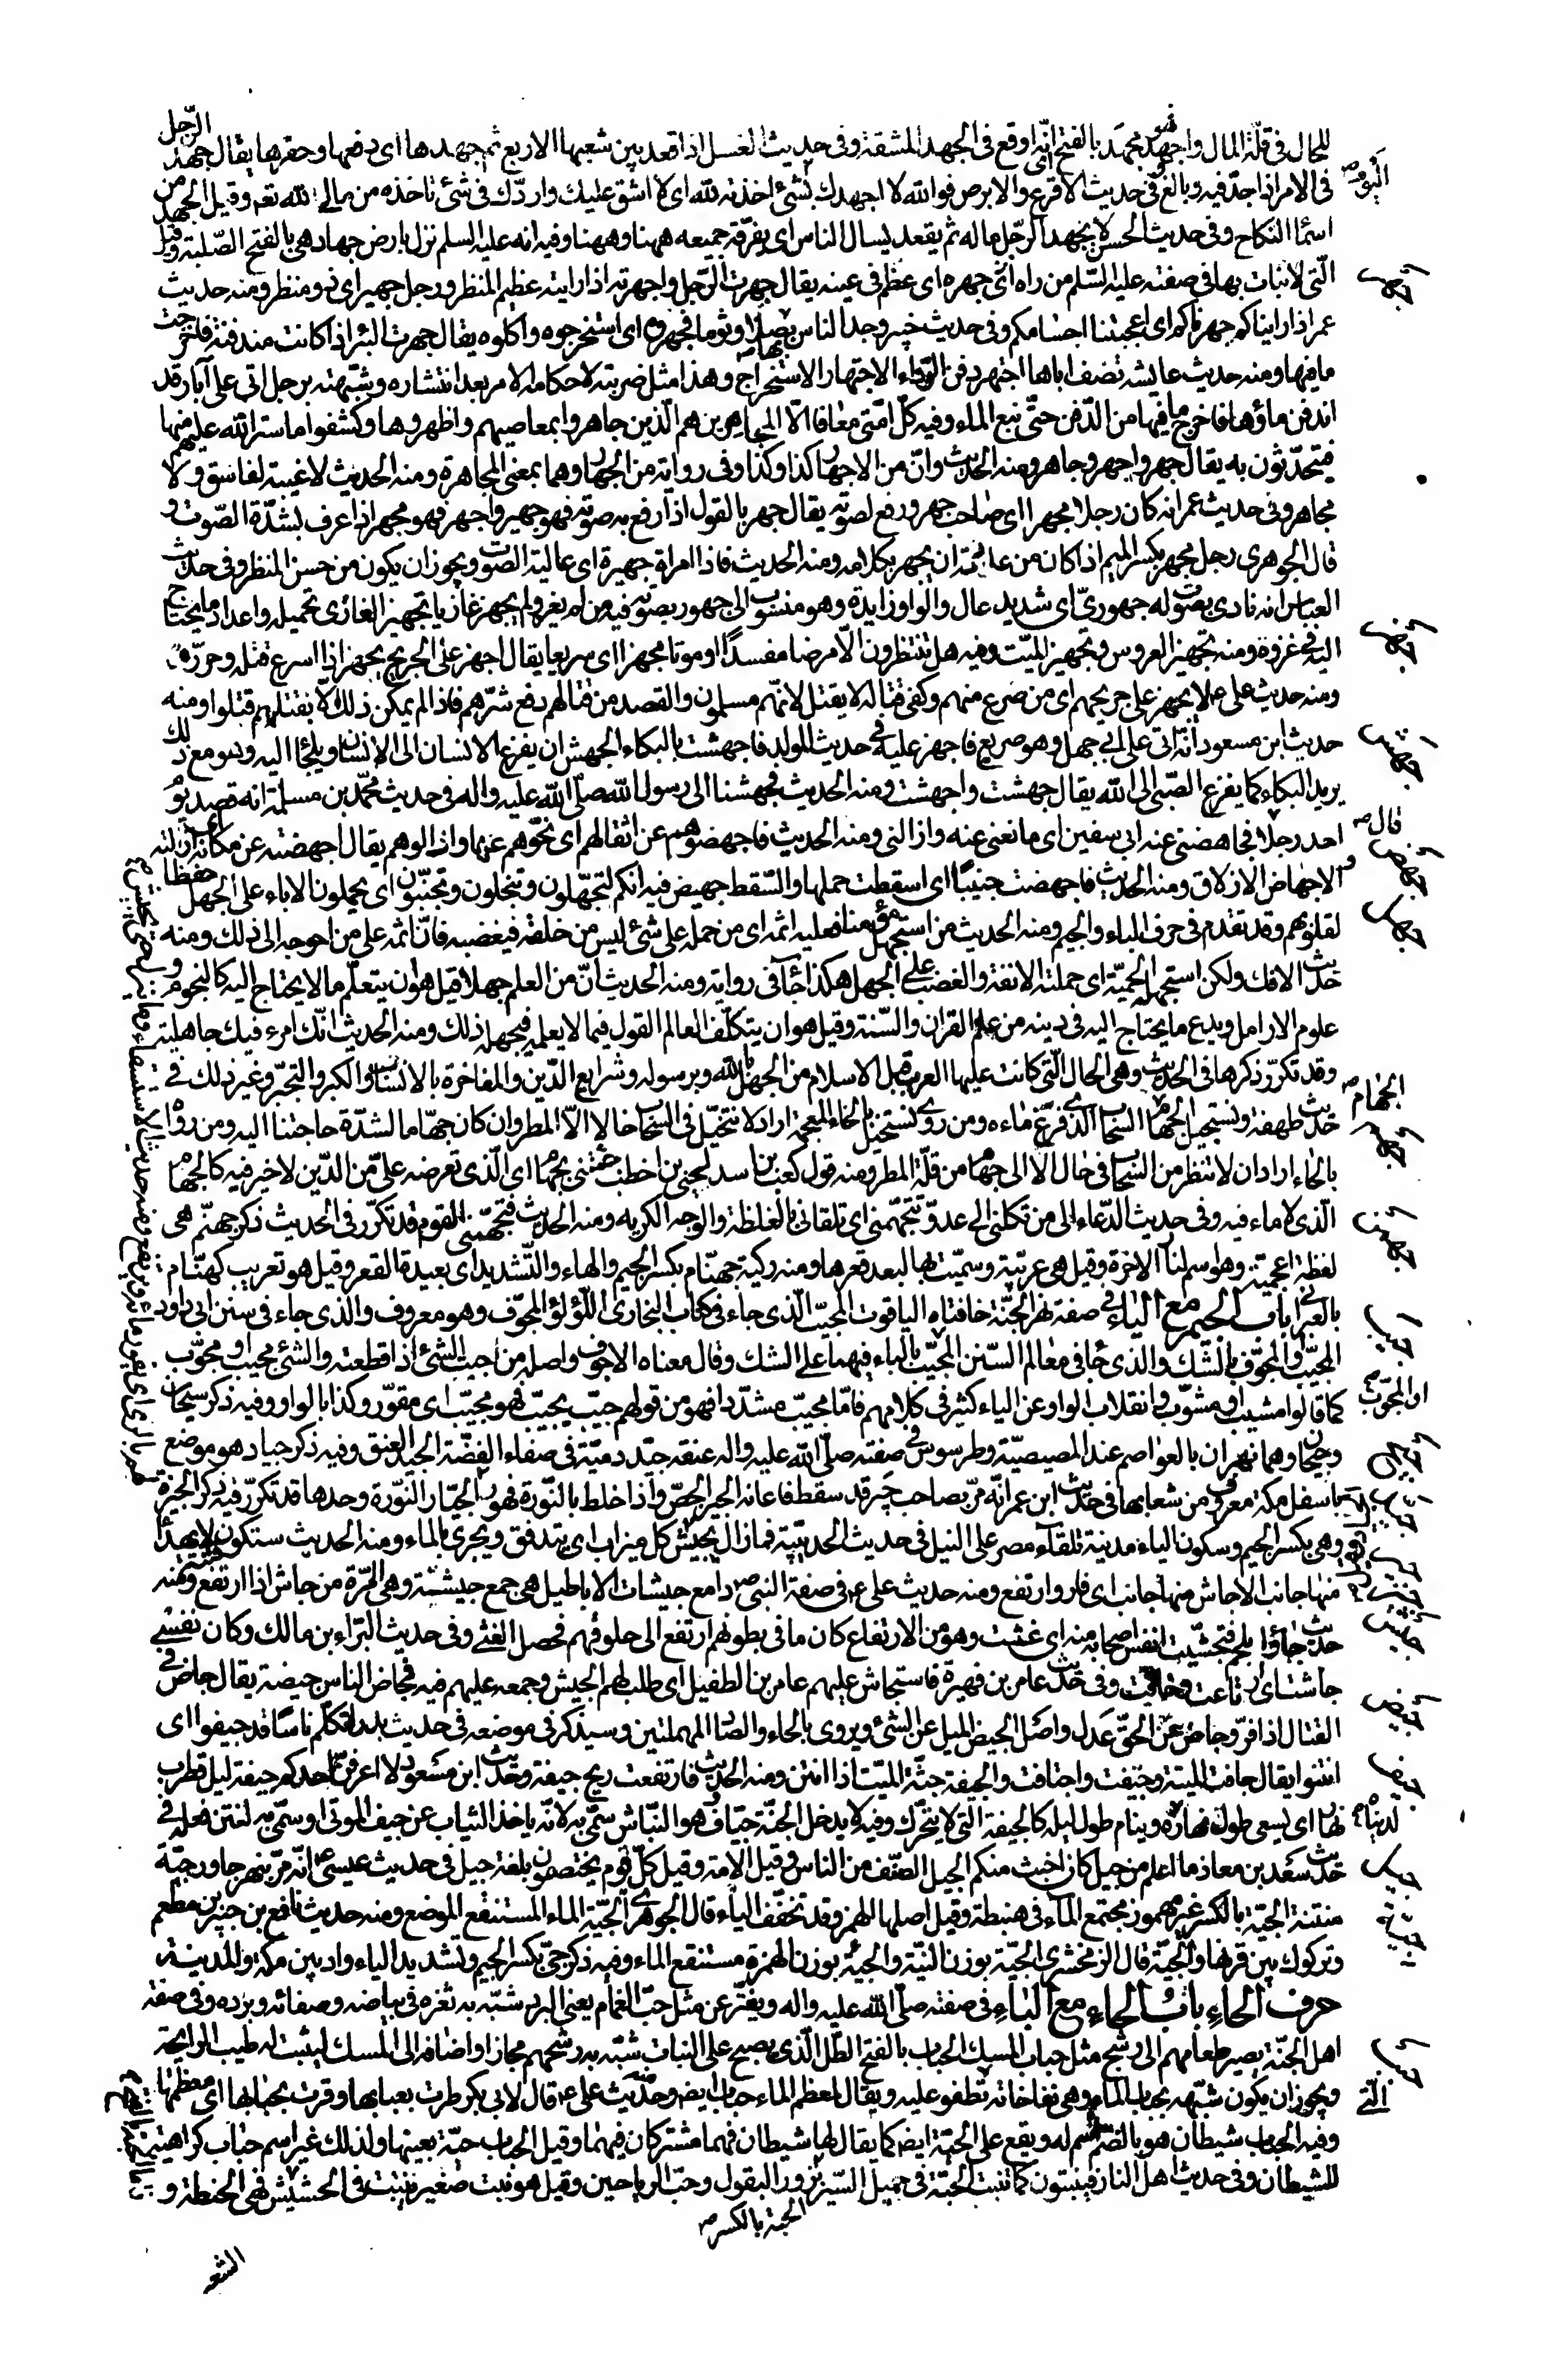 للحال فى قلّة المال واجهد فهو مجهد بالفتح اى انّه اوقع فى الجهد المشقة وفى حديث الغسل اذا قعد بين شعبها الاربع ثم جهدها اى دفعها وحفزها يقال جهد الرّجل
فى الامر اذا جدّ فيه وبالغ وفى حديث الاقرع والابرص فوالله لا اجهدك بشئ اخذته لله اى لا اشق عليك واردّك فى شئ تاخذه من مالى لله تعم وقيل الجهد من
اسماء النكاح وفى حديث الحسن لا يجهد الرّجل ماله ثم يقعد ليسال الناس اى يفرّقه جميعه ههنا وههنا وفيه انه عليه السلم نزل بارض جهاد هى بالفتح الصّلبة وقيل
الّتى لا نبات بها فى صفته عليه السّلم من راه جهره اى عظم فى عينه يقال جهرت الرّجل واجهرته اذا رايته عظيم المنظر ورجل جهير اى ذو منظر ومنه حديث
عمر اذا رايناكم جهرناكم اى اعجبتنا اجسامكم وفى حديث خيبر وجد الناس بها بصلا وثوما فجهروه اى استخرجوه واكلوه يقال جهرت البئر اذا كانت مندفنة فاخرجت
ما فيها ومنه حديث عايشه تصف اباها اجتهر دفن الرّواء الاجتهار الاستخراج وهذا مثل ضربته لاحكامه الامر بعد انتشاره وشبّهته برجل اتى على آبار قد
اندفن ماؤها فاخرج ما فيها من الدّفن حتّى نبع الماء وفيه كلّ امّتى معافا الّا المجاهرين هم الّذين جاهروا بمعاصيهم واظهروها وكشفوا ما ستر الله عليهم منها
فيتحدّثون به يقال جهر واجهر وجاهر ومنه الحديث وانّ من الاجهار كذا وكذا وفى رواية من الجهار وهما بمعنى المجاهرة ومنه الحديث لا غيبة لفاسق ولا
مجاهر وفى حديث عمر انه كان رجلا مجهرا اى صاحب جهر ورفع لصوته يقال جهر بالقول اذا رفع به صوته فهو جهير واجهر فهو مجهر اذا عرف بشدّة الصّوت و
قال الجوهرى رجل مجهر بكسر الميم اذا كان من عادته ان يجهر بكلامه ومنه الحديث فاذا امراة جهيرة اى عالية الصّوت ويجوز ان يكون من حسن المنظر وفى حديث
العباس انه نادى بصوت له جهورىّ اى شديد عال والواو زايدة وهو منسوب الى جهور بصوته فيه من لم يغز ولم يجهز غازيا تجهيز الغازى تحميله واعداد ما يحتاج
اليه فى غزوه ومنه تجهيز العروس وتجهيز الميّت وفيه هل تنتظرون الّا مرضا مفسدًا او موتا مجهزا اى سريعا يقال اجهز على الجريح يجهز اذا اسرع قتله وحرّره
ومنه حديث على ع لا يجهز على جريحهم اى من صرع منهم وكفى قتاله لا يقتل لانّهم مسلمون والقصد من قتالهم دفع شرّهم فاذا لم يمكن ذلك الّا بقتلهم قتلوا ومنه
حديث ابن مسعود انّه اتى على ابى جهل وهو صريع فاجهز عليه فى حديث المولد فاجهشت بالبكاء الجهش ان يفزع الانسان الى الانسان ويلجا اليه وهو مع ذلك
يريد البكاء كما يفزع الصّبىّ الى امّه يقال جهشت واجهشت ومنه الحديث فجهشنا الى رسول الله صلّى الله عليه واله فى حديث محمّد بن مسلمة انه قصد يوم
احد رجلا قال فجاهضنى عنه ابو سفين اى مانعنى عنه وازالنى ومنه الحديث فاجهضوهم عن اثقالهم اى نحّوهم عنها وازالوهم يقال اجهضته عن مكانه ازلته
والاجهاض الازلاق ومنه الحديث فاجهضت جنينًا اى اسقطت حملها والسّقط جهيض فيه انكم لتجهّلون وتبخلون وتجبّنون اى يحملون الاباء على الجهل حفظا
لقلوبهم وقد تقدم فى حرف الباء والجيم ومنه الحديث من استجهل مؤمنا فعليه اثمه اى من حمله على شئ ليس من خلقه فيغضبه فانّ اثمه على من احوجه الى ذلك ومنه
حديث الافك ولكن استجهلته الحميّة اى حملته الانفة والغضب على الجهل هكذا جآء فى رواية ومنه الحديث انّ من العلم جهلا قيل هو ان يتعلّم ما لا يحتاج اليه كالنجوم و
علوم الاوائل ويدع ما يحتاج اليه فى دينه من علم القرآن والسّنة وقيل هو ان يتكلّف العالم القول فيما لا يعلمه فيجهله ذلك ومنه الحديث انّك امرء فيك جاهلية
وقد تكرّر ذكرها فى الحديث وهى الحال الّتى كانت عليها العرب قبل الاسلام من الجهل بالله وبرسوله وشرايع الدّين والمفاخرة بالانساب والكبر والتجبّر وغير ذلك فى
حديث طهفة ونستحيل الجهام الجهام السّحاب الّذى فرغ ماءه ومن روى نستخيل بالخاء المعجمة اراد لا نتخيّل فى السّحاب خالا الّا المطر وان كان جهاما لشدّة حاجتنا اليه ومن رواه
بالحاء اراد ان لا ننظر من السّحاب فى حال الّا الى جهام من قلّة المطر ومنه قول كعب بن اسد لحيىّ بن اخطب جئتنى بجهام اى الّذى تعرضه علىّ من الدّين لا خير فيه كالجهام
الّذى لا ماء فيه وفى حديث الدّعاء الى من تكلنى الى عدوّ يتجهّمنى اى تلقانى بالغلظة والوجه الكريه ومنه الحديث فتجهّمنى القوم قد تكرّر فى الحديث ذكر جهنّم هى
لفظة اعجميّة وهو اسم لنار الاخرة وقيل هى عربيّة وسمّيت بها لبعد قعرها ومنه ركية جهنّام بكسر الجيم والهاء والتّشديد اى بعيدة القعر وقيل هو تعريب كهنّام
بالعبرانى باب الجيم مع الياء فى صفة نهر الجنّة حافتاه الياقوت المجيّب الّذى جاء فى كتاب البخارى اللؤلؤ المجوّف وهو معروف والذى جاء فى سنن ابى داود
المجيّب او المجوّف بالشّك والذى جاء فى معالم السّنن المجيّب او المجوّب بالباء فيهما على الشك وقال معناه الاجوف واصله من جبت الشئ اذا قطعته والشئ مجيب او مجوب
كما قالوا مشيب ومشوب وانقلاب الواو عن الياء كثير فى كلامهم فامّا مجيّب مشدّدا فهو من قولهم جيّب يجيّب فهو مجيّب اى مقوّر وكذا بالواو وفيه ذكر سيحان
وجيحان وهما نهران بالعواصم عند المصيصيّة وطرسوس فى صفته صلّى الله عليه واله عنقه جيد دمية فى صفاء الفضّة الجيد العنق وفيه ذكر جياد هو موضع
باسفل مكة معروف من شعابها فى حديث ابن عمر انّه مرّ بصاحب جير قد سقط فاعانه الجير الجصّ واذا خلط بالنّورة فهو الجيّار وقيل الجيّار النّورة وحدها قد تكرّر فيه ذكر الجيزة
وهى بكسر الجيم وسكون الياء مدينة تلقآء مصر على النيل فى حديث الحديبيّة فما زال يجيش كل ميزاب اى يتدفق ويجرى بالماء ومنه الحديث ستكون فتنة لا يهدأ
منها جانب الا جاش منها جانب اى فار وارتفع ومنه حديث على ع فى صفة النبى ص دامغ جيشات الاباطيل هى جمع جيشة وهى المرّة من جاش اذا ارتفع ومنه
حديث جاؤا بلحم فتجيّشت انفس اصحابه منه اى غثت وهو من الارتفاع كان ما فى بطونهم ارتفع الى حلوقهم فحصل الغثى وفى حديث البرّاء بن مالك وكان نفسى
جاشت اى ارتاعت وخافت وفى حديث عامر بن فهيرة فاستجاش عليهم عامر بن الطفيل اى طلب لهم الجيش وجمعه عليهم فيه فجاض الناس جيضة يقال جاض فى
القتال اذا فرّ وجاض عن الحقّ عدل واصل الجيض الميل عن الشئ ويروى بالحاء والصّاد المهملتين وسيذكر فى موضعه فى حديث بدر اتكلّم ناسًا قد جيفوا اى
انتنوا يقال جافت الميتة وجيّفت واجتافت والجيفة جثّة الميّت اذا انتن ومنه الحديث فارتفعت ريح جيفة وحديث ابن مسعود لا اعرفنّ احدكم جيفة ليل قطرب
نهار اى يسعى طول نهاره لدنياه وينام طول ليله كالجيفة التى لا يتحرّك وفيه لا يدخل الجنّة جيّاف هو النّباش سمّى به لانّه ياخذ الثياب عن جيف الموتى او سمّى به لنتن فعله فى
حديث سعد بن معاذ ما اعلم من جيل كان اخبث منكم الجيل الصّنف من الناس وقيل الامة وقيل كلّ قوم يختصون بلغة جيل فى حديث عيسى ع انّه مرّ بنهر جاور جيّة
منتنة الجيّة بالكسر غير مهموز مجتمع المآء فى هبطة وقيل اصلها الهمز وقد تخفّف الياء قال الجوهرى الجيّة الماء المستنقع الموضع ومنه حديث نافع بن جبير بن مطعم
وتركوك بين قرنها والجيّة قال الزمخشرى الجيّة بوزن النيّة والجيئة بوزن الهمزة مستنقع الماء وفيه ذكر جىّ بكسر الجيم وتشديد الياء واد بين مكة والمدينة
حرف الحاء باب الحاء مع الباء فى صفته صلّى الله عليه واله ويفترّ عن مثل حبّ الغمام يعنى البرد شبّه به ثغره فى بياضه وصفائه وبرده وفى صفة
اهل الجنّة يصير طعامهم الى رشح مثل حباب المسك الحباب بالفتح الطّل الّذى يصبح على النبات شبّه به رشحهم مجازا واضافه الى المسك ليثبت له طيب الرايحة
ويجوز ان يكون شبّهه بحباب الماء وهى نفاخاته الّتى تطفو عليه ويقال لمعظم الماء حباب ايض ومنه حديث على ع قال لابى بكر طرت بعبابها وفزت بحبابها اى معظمها
وفيه الحباب شيطان هو بالضّم اسم له ويقع على الحيّة ايض كما يقال لها شيطان فهما مشتركان فيهما وقيل الحباب حيّة بعينها ولذلك غير اسم حباب كراهية
للشيطان وفى حديث اهل النار فينبتون كما تنبت الحبّة فى حميل السّيل الحبة بالكسر بزور البقول وحبّ الرياحين وقيل هو نبت صغير ينبت فى الحشيش فهى الحنطة و
الشعير